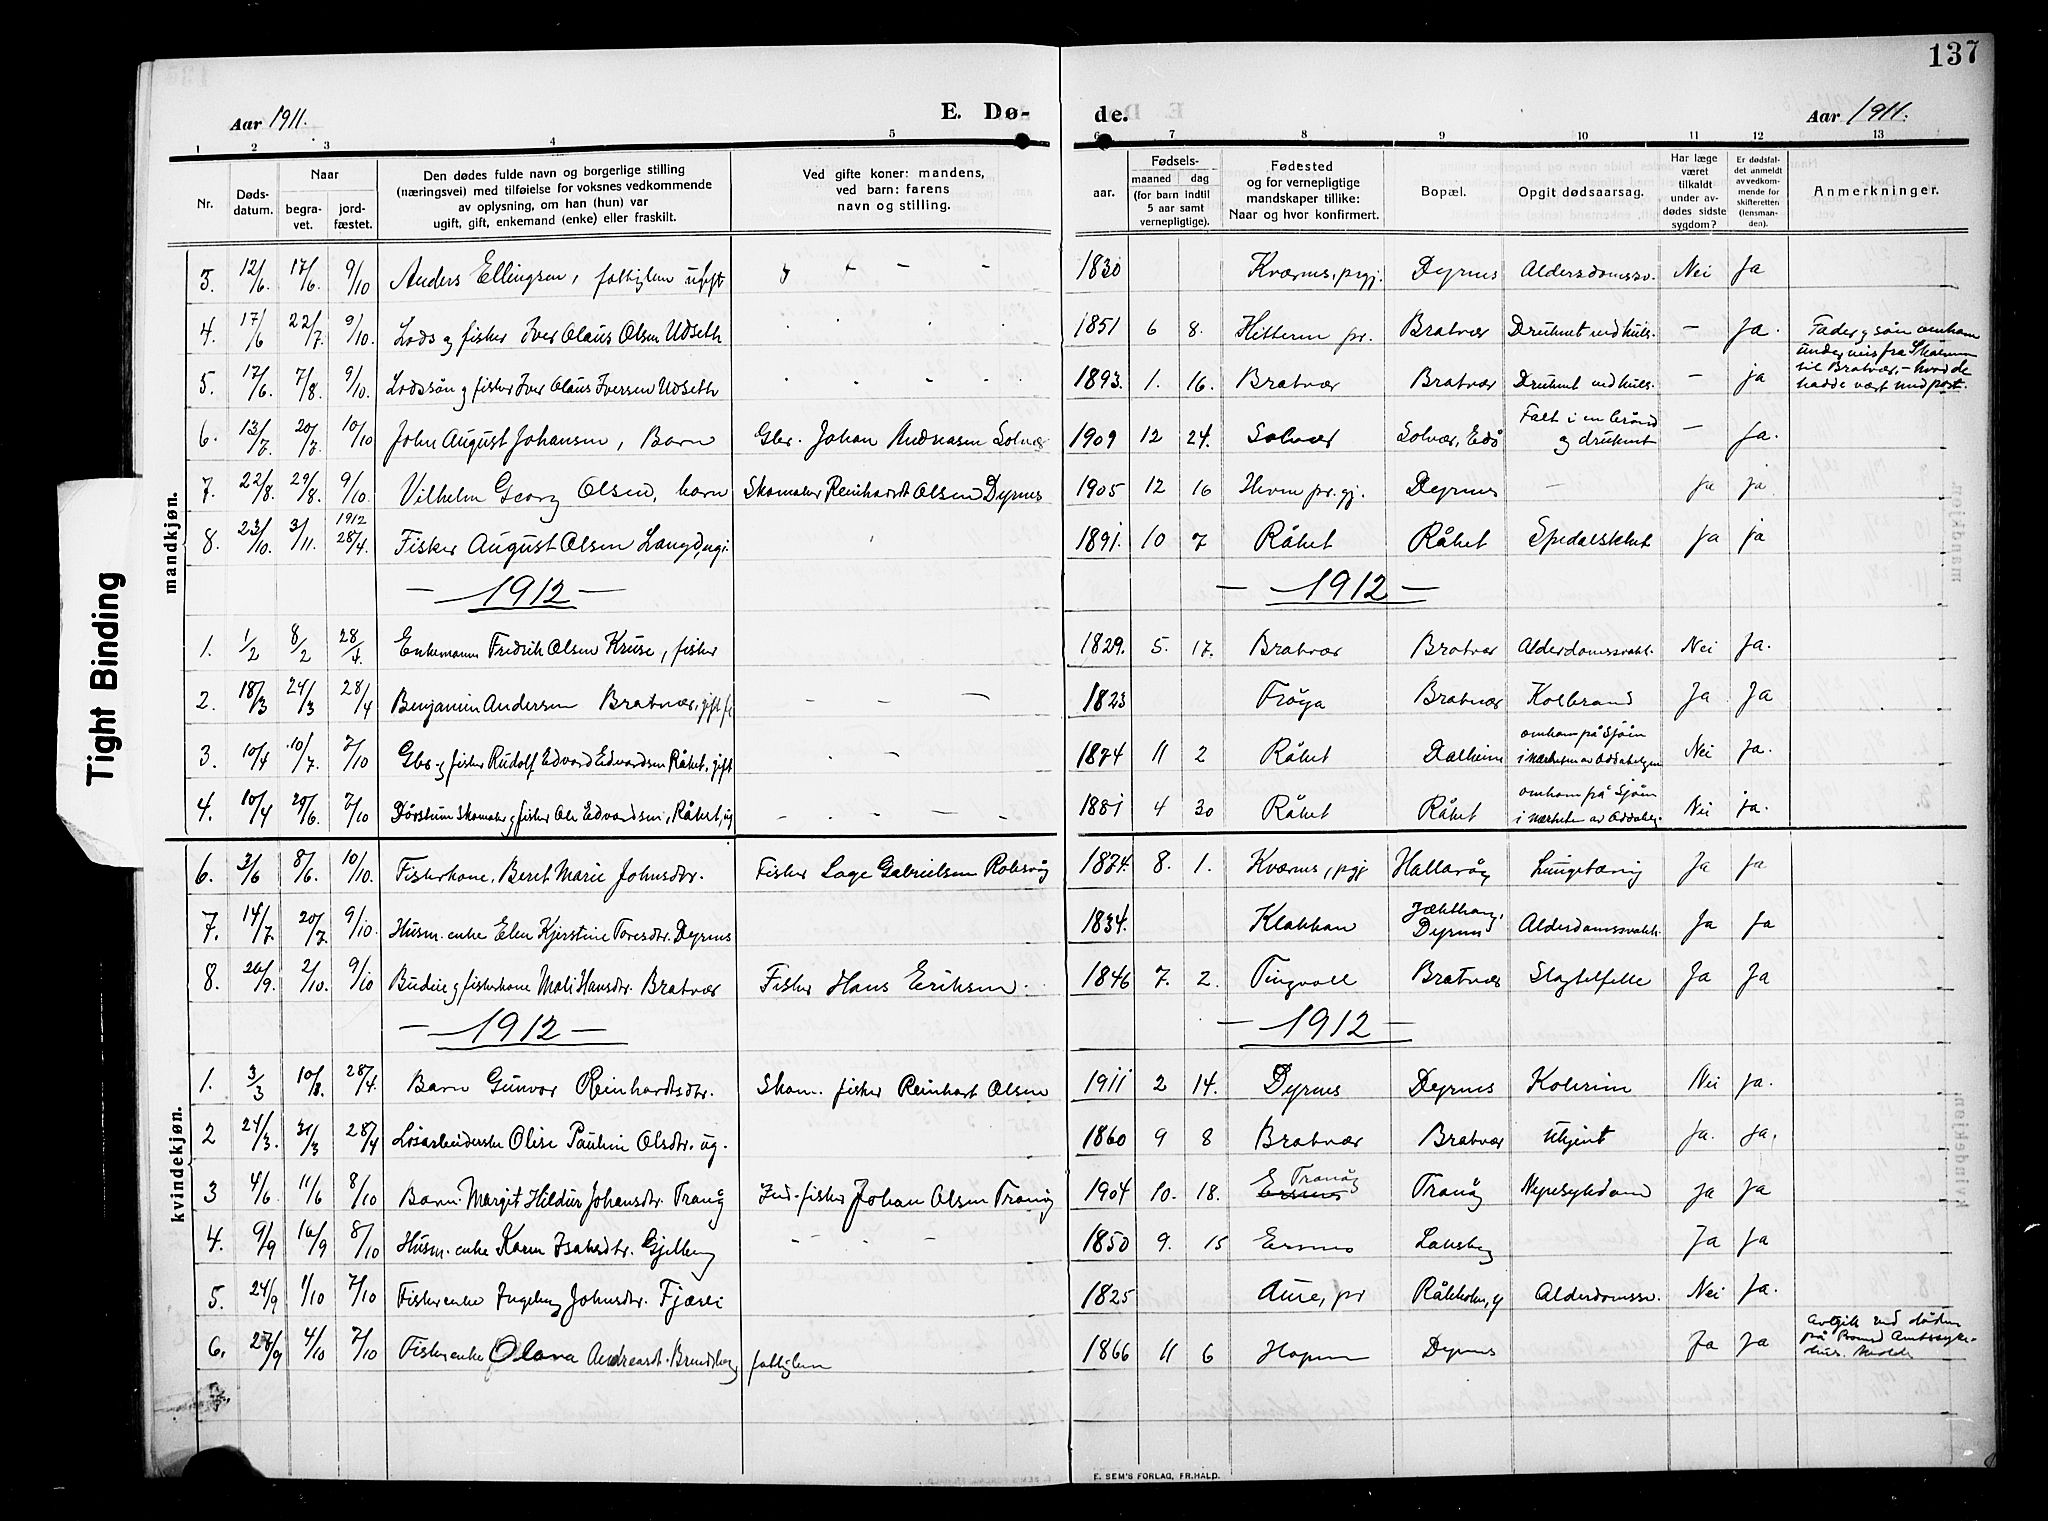 137
Aar 1911.
E. Dø-
de.
Aar 1911.
1 2 3 4 5 6 7 8 9 10 11 12 13
Nr.
Døds-
datum.
Naar
begra-
vet.
jord-
fæstet.
Den dødes fulde navn og borgerlige stilling
(næringsvei) med tilføielse for voksnes vedkommende
av oplysning, om han (hun) var
ugift, gift, enkemand (enke) eller fraskilt.
Ved gifte koner: mandens,
ved barn: farens
navn og stilling.
aar.
Fødsels-
maaned dag
(for barn indtil
5 aar samt
vernepligtige).
Fødested
og for vernepligtige
mandskaper tillike:
Naar og hvor konfirmert.
Bopæl.
Opgit dødsaarsag.
Har læge
været
tilkaldt
under av-
dødes sidste
sygdom?
Er dødsfal-
det anmeldt
av vedkom-
mende for
skifteretten
(lensman-
den).
Anmerkninger.
mandkjøn.
3. 12/6. 17/6. 9/10 Anders Ellingsen, fattiglem ugift 1830 Kværnes, prgj. Dyrnes Aldersdomssv. Nei Ja
4. 17/6 22/7. 9/10. Lods og fisker Iver Olaus Olsen Udseth 1851 6 8. Hitteren pr. Bratvær Druknet ved hvils. — Ja.
5. 17/6. 7/8. 9/10. Lodssøn og fisker Iver Olaus Iversen Udseth 1893. 1. 16. Bratvær Bratvær Druknet ved hvils. — ja
Fader og søn omkom
underveis fra
til Bratvær, — hvor de
hadde vært med post.
6. 13/7. 20/7 10/10 John August Johansen, Barn Gbr. Johan Andreasen Solvær 1909 12 24. Solvær Solvær, Edø Falt i en brønd
og druknet — Ja.
7. 22/8. 29/8. 9/10. Vilhelm Georg Olsen, barn Skomaker Reinhardt Olsen Dyrnes 1905 12 16 Heven pr.gj. Dyrnes — Ja ja
8. 23/10. 3/11. 1912 28/4. Fisker August Olsen Langd, ugi. 1891. 10 7 Råket Råket Spedalskhet Ja ja
— 1912 — — 1912 —
1. 1/2 8/2 28/4. Enkemann Fredrik Olsen Kruse, fisker 1829. 5. 17. Bratvær Bratvær Alderdomssvakh. Nei Ja.
2. 18/3 24/3 28/4 Benjamin Andersen Bratvær, gift fi 1823 Frøya Bratvær Kolbrand Ja Ja
3. 10/4 10/7. 7/10 Gbr. og fisker Rudolf Edvard Edvardsen Råket, gift 1874 11 2 Råket Dalheim omkom på Sjøen
i nærheten av Nei ja.
4. 10/4 29/6. 7/10 Skomaker og fisker Ole Edvardsen, Råket, ug 1881 4 30 Råket Råket omkom på Sjøen
i nærheten av Nei ja.
kvindekjøn.
6. 3/6 8/6. 10/10. Fiskerkone, Beret Marie Johnsdtr. Fisker Lage Gabrielsen Roksvåg 1874. 8. 1. Kværnes, pgj Hallarøy Lungetæring Ja ja
7. 14/7. 20/7. 9/10. Husm. enke Elen Kjerstine Toresdtr. Dyrnes 1834. Klakken Jækthaug,
Dyrnes Alderdomssvakh. Ja Ja
8. 26/9. 2/10. 9/10 Budeie og fiskerkone Mali Hansdtr. Bratvær Fisker Hans Eriksen. 1846 7. 2. Tingvoll Bratvær Slagtilfelle Ja Ja
— 1912 — — 1912 —
1. 3/3 10/3. 28/4. Barn Gunvor Reinhardtsdtr. Skom. fisker Reinhart Olsen 1911 2 14. Dyrnes Dyrnes Kolerine Nei ja.
2 24/3. 31/3 28/4 Løsarbeiderske Olise Pauline Olsdtr. ug. 1860 9 8 Bratvær Bratvær Ukjent Ja. Ja.
3 4/6. 11/6 8/10 Barn. Margit Hildur Johansdtr. Tranøy Ind. fisker Johan Olsen Tranøy 1904 10. 18. Tranøy Tranøy Nyresykdom Ja Ja
4. 9/9 16/9 8/10 Husm. enke Karen Isaksdtr. Gjelberg 1850 9. 15 Ersnes Laksberg Ja Ja
5. 24/9 1/10 7/10 Fiskerenke Ingeborg Johnsdtr. Fjærli 1825 Aure, pr Råkholm, g Alderdomssv. Nei Ja.
6. 27/9 4/10 7/10 Fiskerenke Olava Andreasdt. fattiglem 1866 11 6 Hopen Dyrnes Ja Ja
Avgik ved døden
på Romsd Amtssyke-
hus. Molde
E. SEM'S FORLAG, FR.HALD.
Tight Binding